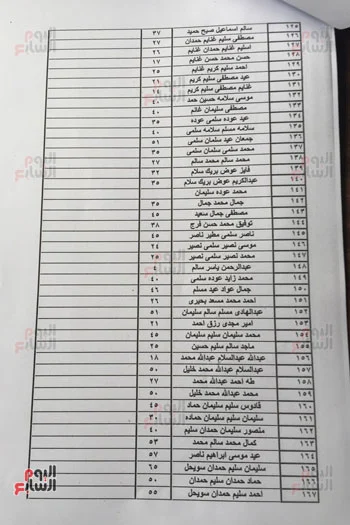 ١٢٥ سالم اسماعيل صبح حميد ٣٧
١٢٦ مصطفى سليم غنايم حمدان ٢٧
١٢٧ اسليم غنايم حمدان غنايم ٢٦
١٢٨ حسن محمد حسن غنايم ١٧
١٢٩ احمد سليم كريم غنايم ٢٥
١٣٠ عيد مصطفى سليم كريم ٢١
١٣١ غنايم مصطفى سليم كريم
١٣٢ موسى سلامه حسين حمد ٤٠
١٣٣ مصطفى سليمان غانم ٤٠
١٣٤ عيد عوده سلمى عوده ٣٥
١٣٥ سلامه مسلم سلامه سلمى ٤٠
١٣٦ جمعان عيد سلمان سلمى ٥١
١٣٧ محمد سلمى سلمان سلمى ٣٥
١٣٨ محمد سالم محمد سالم ٢٧
١٣٩ فايز عوض بريك سلام ٣٢
١٤٠ عبدالكريم عوض بريك سلام ٣٥
١٤١ محمد عوده سليمان
١٤٢ جمال محمد جمال ٣٥
١٤٣ مصطفى جمال سعيد ٤٥
١٤٤ توفيق محمد حسن فرج ٣٨
١٤٥ ناصر سلمى مطير ناصر ٤٥
١٤٦ موسى نصير سلمى نصير ٢٤
١٤٧ محمد نصير سلمى نصير ٢٥
١٤٨ عبدالرحمن ياسر سالم ٤
١٤٩ محمد زايد عوده سلمى ٤٠
١٥٠ جمال عواد عيد مسلم ٤٦
١٥١ احمد محمد مسعد بحيرى ٢٦
١٥٢ عبدالهادى مسلم سالم سليمان ٥١
١٥٣ امير مجدى رزق احمد ٢١
١٥٤ سليمان محمد سليم سليمان ٤٥
١٥٥ ماجد سالم سليم حسين ٢٥
١٥٦ عبدالله عبدالسلام عبدالله محمد ١٨
١٥٧ عبدالسلام عبدالله محمد خليل ٥٠
١٥٨ طه احمد عبدالله محمد ٢٧
١٥٩ محمد عبدالله محمد خليل ٥٠
١٦٠ قادوس سليم سليمان حماد ٤٥
١٦١ سليمان سليم سليمان حماده ٣٠
١٦٢ منصور سليمان حمدان سليم ٤٠
١٦٣ كمال محمد سالم محمد ٥٣
١٦٤ عيد موسى ابراهيم ناصر ٥٧
١٦٥ سليمان سليم حمدان سويحل ٦٥
١٦٦ حماد حمدان سليم حمدان ٥٠
١٦٧ احمد سليم حمدان سويحل ٥٥
اليوم السابع
اليوم السابع
اليوم السابع